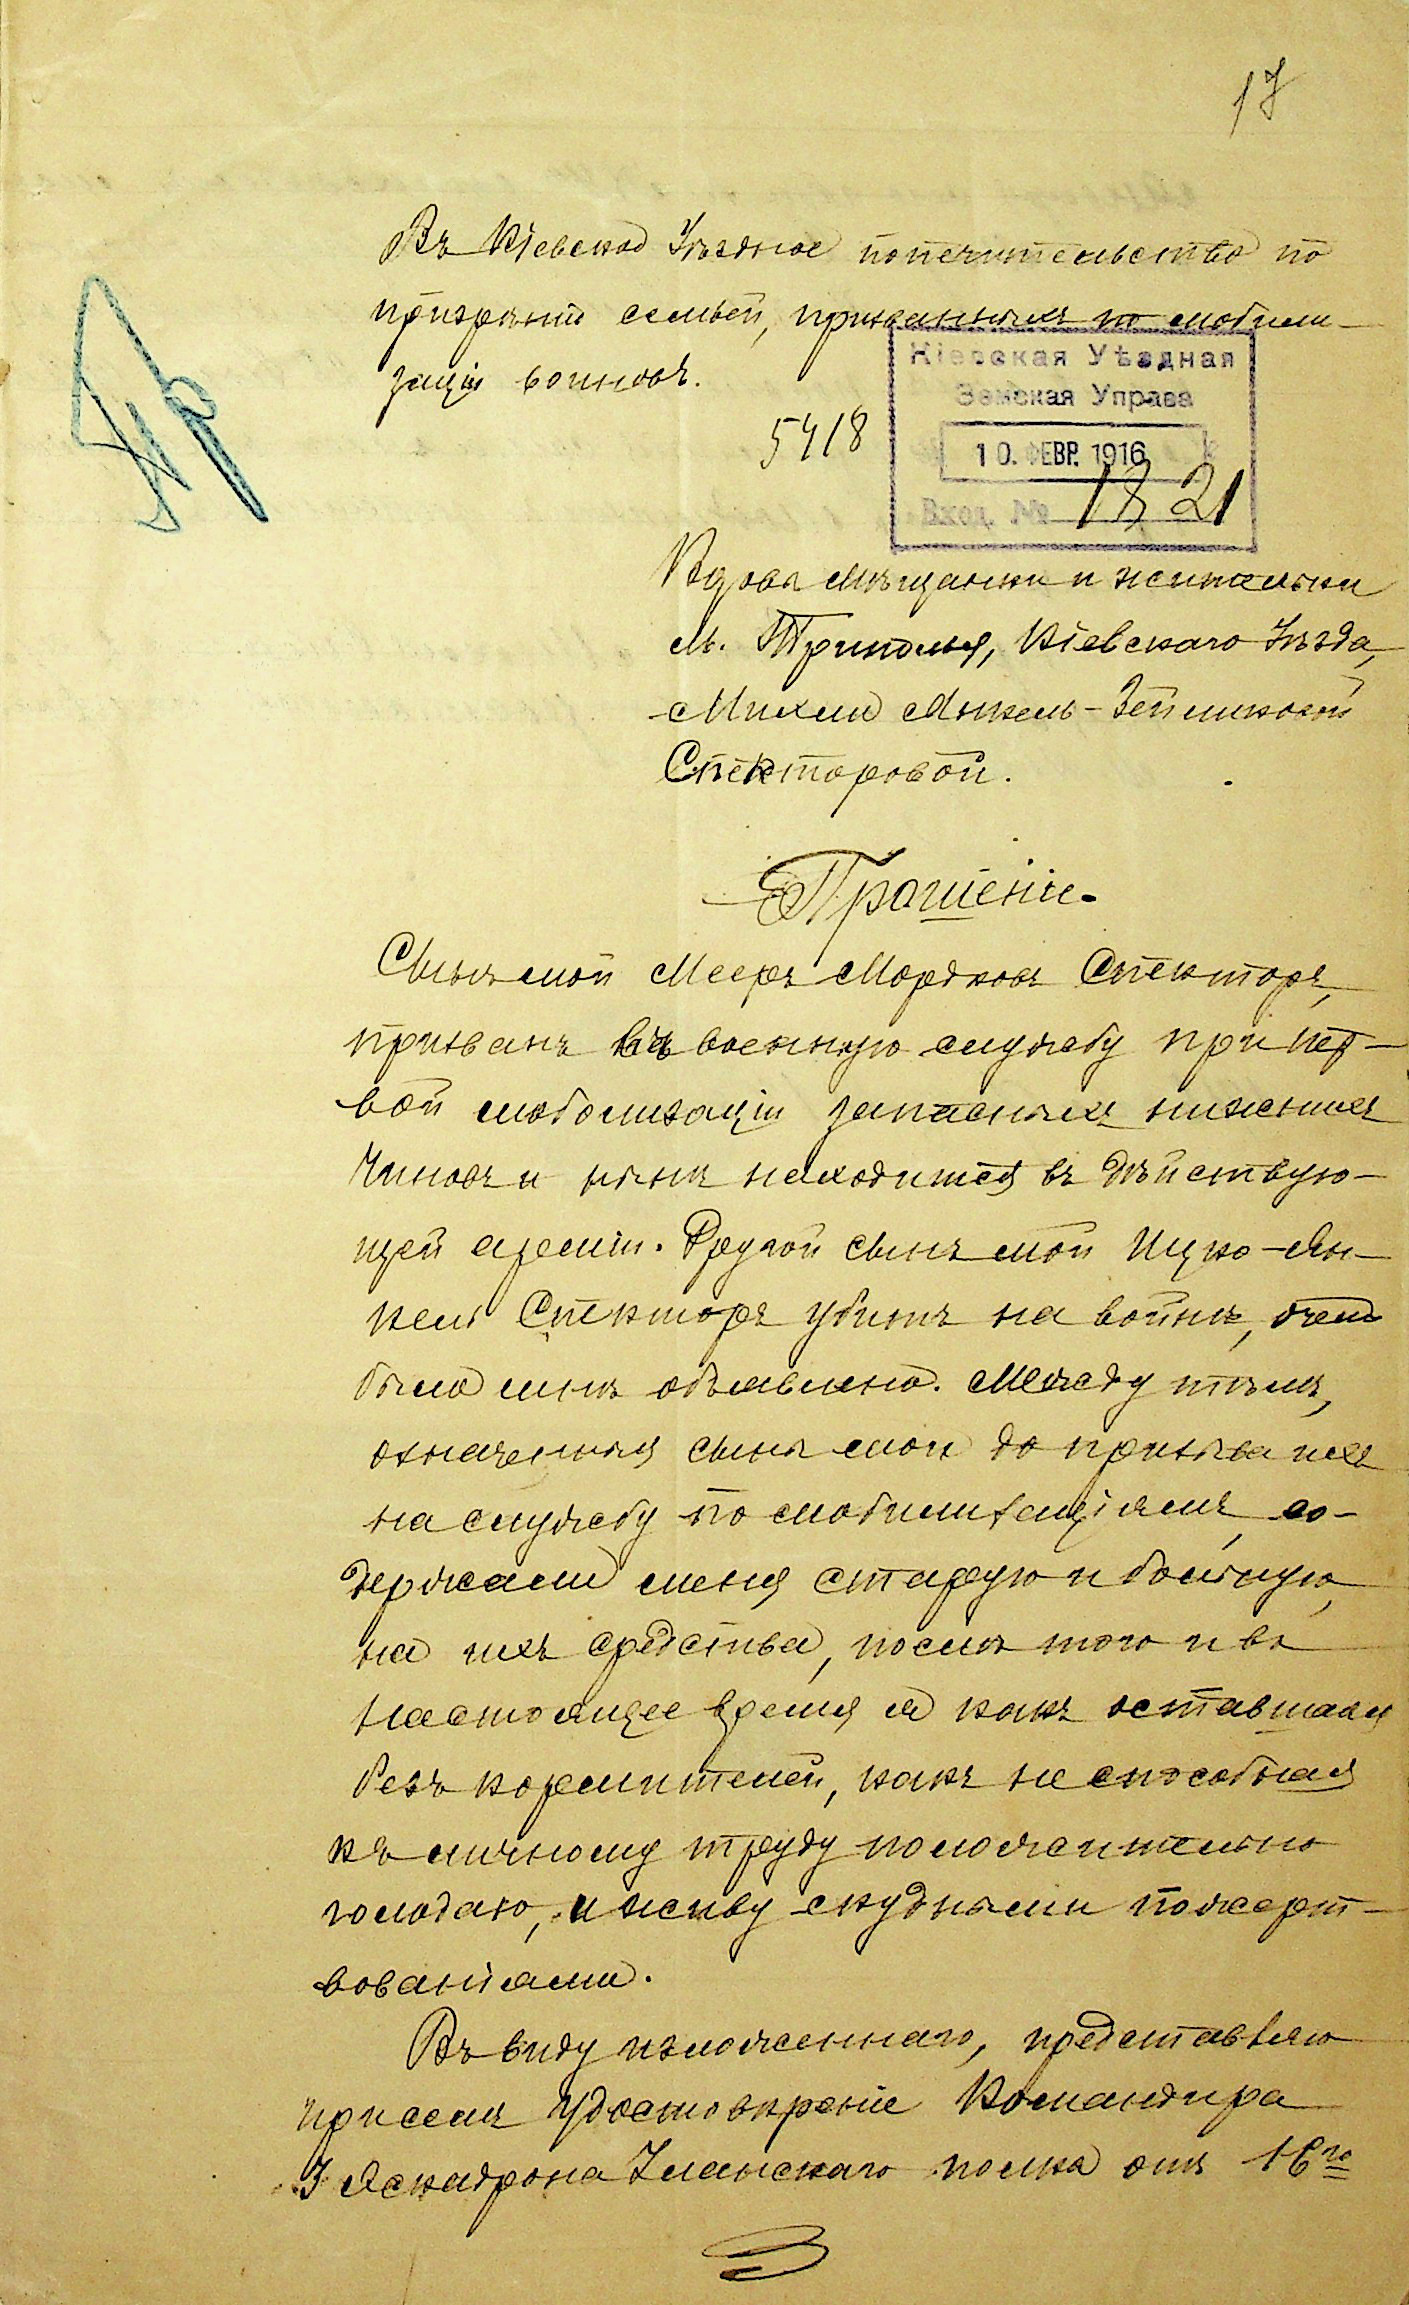 17
Въ Кіевское Уѣздное попечительство по
призрѣнію семьей, призванныхъ по мобили-
заціи воиновъ.
Кіевская Уѣздная
Земская Управа
10. ФЕВР. 1916
Вход. № 1821
5418
Вдовы мѣщанки и жительки
м. Триполья, Кіевскаго Уѣзда,
Спекторовой.
Прошеніе.
Сынъ мой Мееръ Мордковъ Спекторъ,
призванъ въ военную службу при пер-
вой мобилизаціи запасныхъ нижнихъ
чиновъ и нынѣ находится въ дѣйствую-
щей арміи. Другой сынъ мой Ицко-Ян-
кель Спекторъ убитъ на войнѣ, о чемъ
было мнѣ объявлено. Между тѣмъ,
означенныя сыны мои до призыва ихъ
на службу по мобилизаціямъ, со-
держали меня старую и больную,
на ихъ средства, послѣ того и въ
настоящее время я какъ оставшаяся
безъ кормителей, какъ не способная
къ личному труду положительно
голодаю, и живу скудными пожерт-
вованіями.
Въ виду изложеннаго, представляю
при семъ удостовѣреніе Командира
3 Эскадрона Уланскаго полка отъ 16го